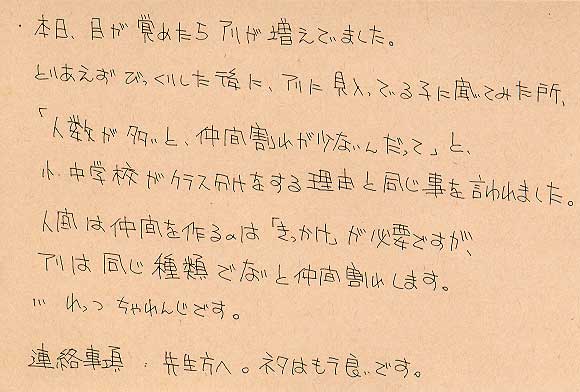 ・本日、目が覚めたらアリが増えてました。
とりあえずびっくりした後に、アリに見入ってる子に聞いてみた所、
「人数が多いと、仲間割れが少ないんだって」と、
小、中学校がクラス分けをする理由と同じ事を言われました。
人間は仲間を作るのは「きっかけ」が必要ですが、
アリは同じ種類でないと仲間割れします。
いい れっつ ちゃれんじです。
連絡事項・先生方へ。ネタはもう良いです。